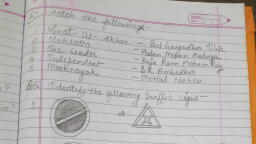 Match the followings -
1 Mirat-Ul-Akbar - Bal Gangadhar Tilak
2 Maharatta - Madan Mohan Malviya
3 The Leader - Raja Ram Mohan Ray
4 Independent - B.R. Ambedkar
5 Mooknayak - Motilal Nehru
Identify the following traffic signs -
1. 2.